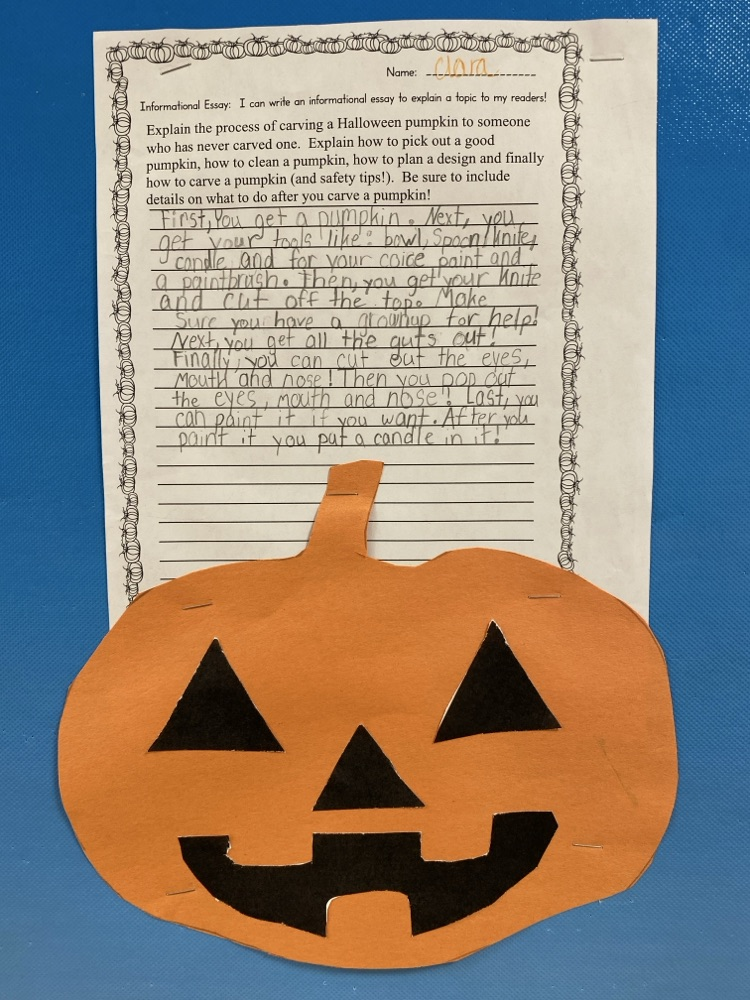 Name: Clara
Informational Essay: I can write an informational essay to explain a topic to my readers!
Explain the process of carving a Halloween pumpkin to someone
who has never carved one. Explain how to pick out a good
pumpkin, how to clean a pumpkin, how to plan a design and finally
how to carve a pumpkin (and safety tips!). Be sure to include
details on what to do after you carve a pumpkin!
First, You get a pumpkin. Next, you
get your tools like: bowl, Spoon, Knife,
candle and for your coice paint and
a paintbrush. Then, you get your knife
and cut off the top. Make
Sure you have a grownup for help!
Next, you get all the guts out!
Finally, you can cut out the eyes,
Mouth and nose! Then you pop out
the eyes, mouth and nose! Last, you
can paint it if you want. After you
paint it you put a candle in it!